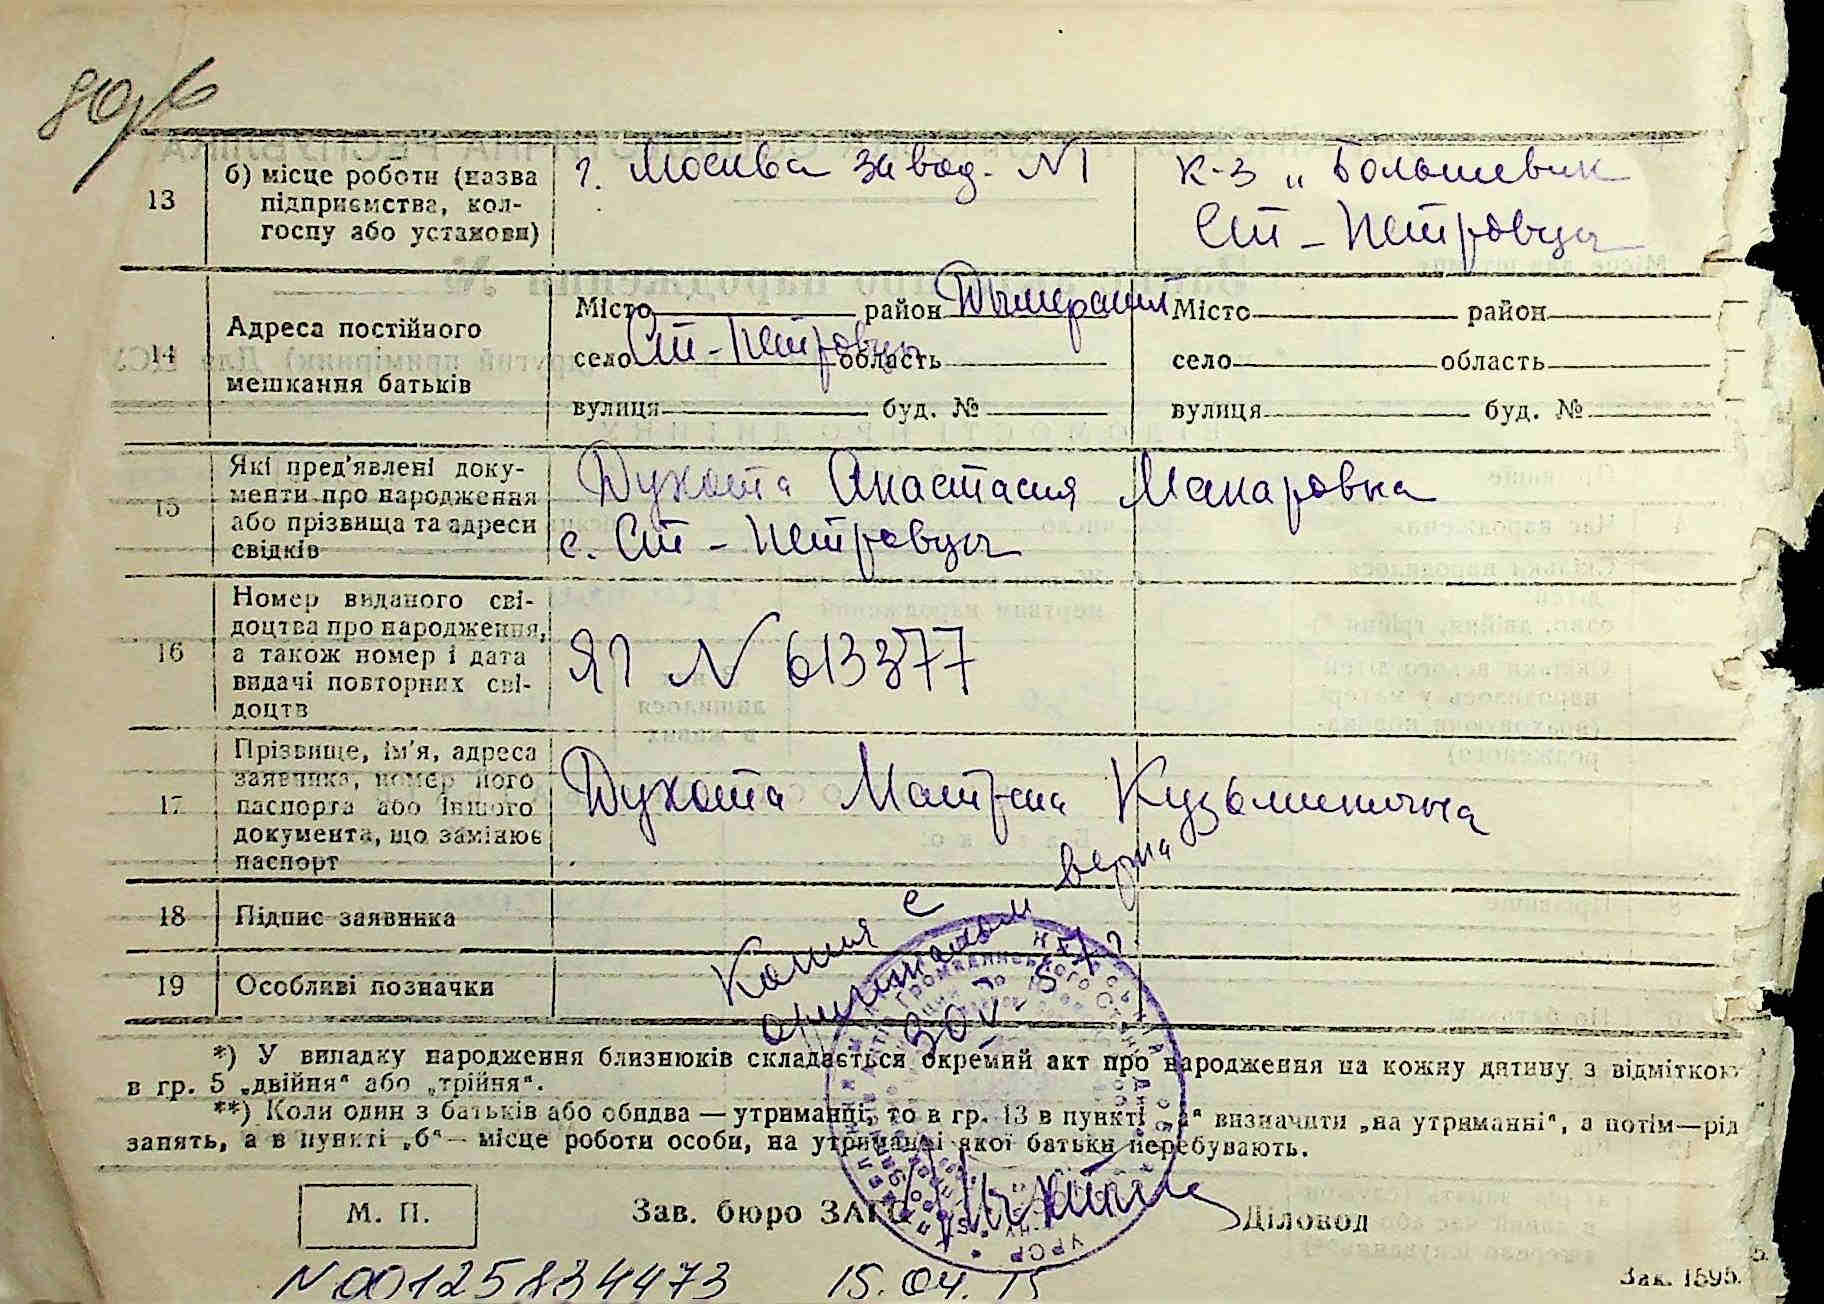 13
б) місце роботи (назва
підприємства, кол-
госпу або установи)
г. Москва завод. №1
к-з „Большевик
Ст-Петровцы
14
Адреса постійного
мешкання батьків
Місто район Дымерский
село Ст-Петровцы область
вулиця буд. №
Місто район
село область
вулиця буд. №
15
Які пред'явлені доку-
менти про народження
або прізвища та адреси
свідків
Духота Анастасия Макаровна
с. Ст-Петровцы
16
Номер виданого сві-
доцтва про народження,
а також номер і дата
видачі повторних сві-
доцтв
ЯГ N 613377
17
Прізвище, ім'я, адреса
заявника, номер його
паспорта або іншого
документа, що замінює
паспорт
Духота Матрена Кузьминична
18
Підпис заявника
19
Особливі позначки
Копия с
оригиналом верна
*) У випадку народження близнюків складається окремий акт про народження на кожну дитину з відміткою
в гр. 5 „двійня" або „трійня".
**) Коли один з батьків або обидва — утриманці, то в гр. 13 в пункті „а" визначити „на утриманні", а потім—рід
занять, а в пункті „б"— місце роботи особи, на утриманні якої батьки перебувають.
М. П.
Зав. бюро ЗАГС
Діловод
N00125834473 15.04.15
Зак. 1595.